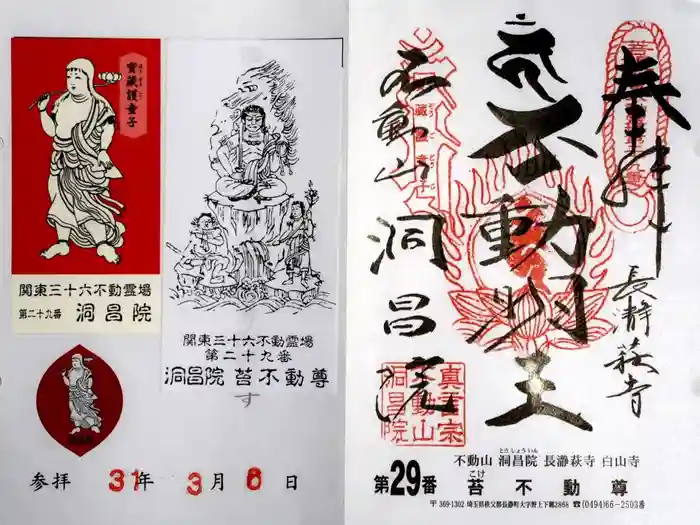 寳蔵護童子
関東三十六不動霊場
第二十九番 洞昌院
関東三十六不動霊場
第二十九番
洞昌院 苔不動尊
す
参拝 31年 3月 6日
奉拝
長瀞萩寺
不動明王
不動山
洞昌院
真言宗
不動山
洞昌院
不動山 洞昌院 長瀞萩寺 白山寺
とうしょういん
第29番 苔不動尊
こけ
〒369-1302・埼玉県秩父郡長瀞町大字野上下郷2868 ☎(0494)66-2503番